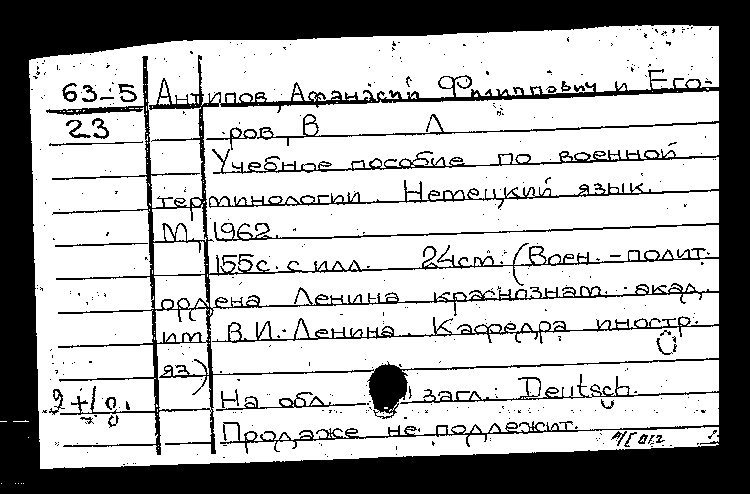 63-5 Антипов, Афанасий Филиппович и Его-
23 ров, В Л
Учебное пособие по военной
терминологии. Немецкий язык.
М., 1962.
155с. с илл. 24см. (Воен.-полит.
ордена Ленина краснознам. акад.
им. В.И. Ленина. Кафедра иностр.
яз.)
На обл. загл.: Deutsch.
Продаже не подлежит.